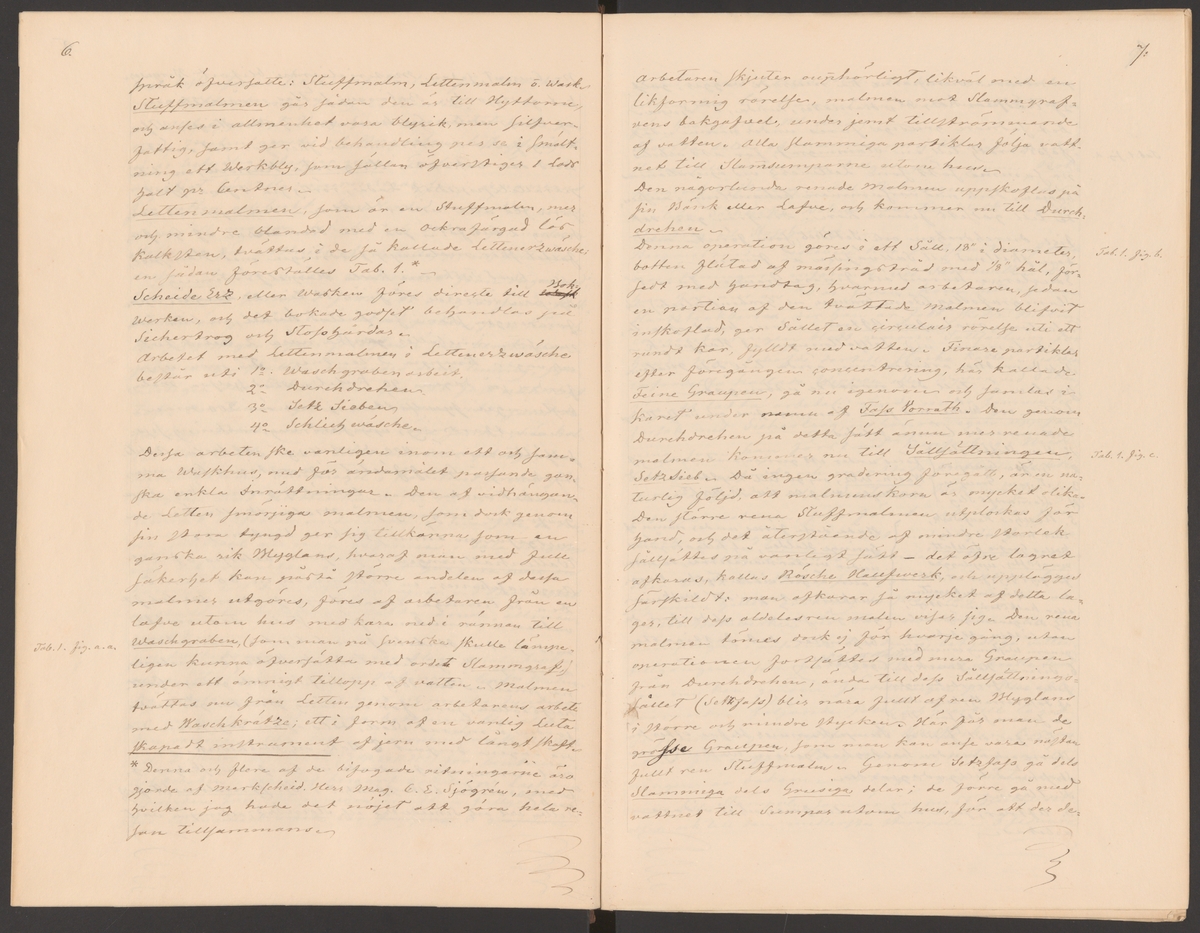 6.
språk öfversatte: Stuffmalm, Lettenmalm o. Wask.
Stuffmalmen går sådan den är till Hyttorne,
och anses i allmenhet vara blyrik, men silfver-
fattig, samt ger vid behandling per se i smält-
ning ett Werkbly, som sällan öfverstiger 1 Lods
halt pr Centner.
Lettenmalmen, som är en Stuffmalm, mer
och mindre blandad med en Ockrafärgad lös
kalksten, tvättas i de så kallade Lettenerzwäsche
en sådan föreställes Tab. 1. *
Scheide Erz eller Wasken föres directe till Bok-
werken, och det bokade godset behandlas på
Sichertrog och Stosshärdar.
Arbetet med Lettenmalmen i Lettenerzwäsche
består uti 1o Waschgrabenarbeit.
2o Durchdrehen
3o Setz Sieben
4o Schliech wäsche.
Dessa arbeten ske vanligen inom ett och sam-
ma Waskhus, med för ändamålet passande gan-
ska enkla Inrättningar. Den af vidhängan-
de Letten smorjiga malmen, som dock genom
sin stora tyngd ger sig tillkänna som en
ganska rik Blyglans, hvaraf man med full
säkerhet kan påstå större andelen af dessa
malmer utgöres, föres af arbetaren från en
lafve utom hus med kara ned i rännan till
Tab. 1. fig. a.a.
Waschgraben, (som man på svenska skulle lämpe-
ligen kunna öfversätta med ordet Slammgraf,)
under ett ömnigt tillopp af vatten. Malmen
tvättas nu från Letten genom arbetarens arbete
med Waschkrätze; ett i form af en vanlig Luta
skapadt instrument af jern med långt skaft.
* Denna och flere af de bifogade ritningarne äro
gjorde af Markscheid. Herr Mag. C. E. Sjögren, med
hvilken jag hade det nöjet att göra hela re-
san tillsammans.
7.
Arbetaren skjuter ouphörligt, likväl med en
likformig rörelse, malmen mot Slammgraf-
vens bakgafvel, under jemt tillströmmande
af vatten. Alla slammiga partiklar följa vatt-
net till Slamsumparne utom hus.
Den någorlunda renade malmen uppskoflas på
sin Bänk eller Lafve, och kommer nu till Durch-
drehen.
Tab. 1. fig. b.
Denna operation göres i ett Såll 18" i diameter,
botten flätad af mässingstråd med 1/8" hål, för-
sedt med handtag, hvarmed arbetaren, sedan
en portion af den tvättade malmen blifvit
inskoflad, ger Sållet en circulair rörelse uti ett
rundt kar, fylldt med vatten. Finare partiklar
efter föregången concentrering, här kallade
Feine Graupen, gå nu igenom och samlas i
karet under namn af Fass Vorrath. Den genom
Durchdrehen på detta sätt ännu mer renade
Tab. 1. fig. c.
malmen kommer nu till Sållsättningen,
Setzsieb. Då ingen gradering föregått, är en na-
turlig följd, att malmens korn är mycket olika.
Den större rena Stuffmalmen utplockas för
hand, och det återstående af mindre storlek
sållsättes på vanligt sätt – det öfre lagret
afkaras, kallas Rösche Haufwerk, och upplägges
särskildt: man afkarar så mycket af detta la-
ger, till dess aldeles ren malm visar sig. Den rena
malmen tömes dock ej för hvarje gång, utan
operationen fortsättes med mera Graupen
från Durchdrehen, ända till dess Sållsättnings-
sållet (Setzfass) blir nära fullt af ren Blyglans
i större och mindre stycken. Här får man de
grösse Graupen, som man kan anse vara nästan
fullt ren Stuffmalm. Genom Setzfass gå dels
Slammiga dels Grusiga delar; de förre gå med
vattnet till Sumpar utom hus, för att der de-